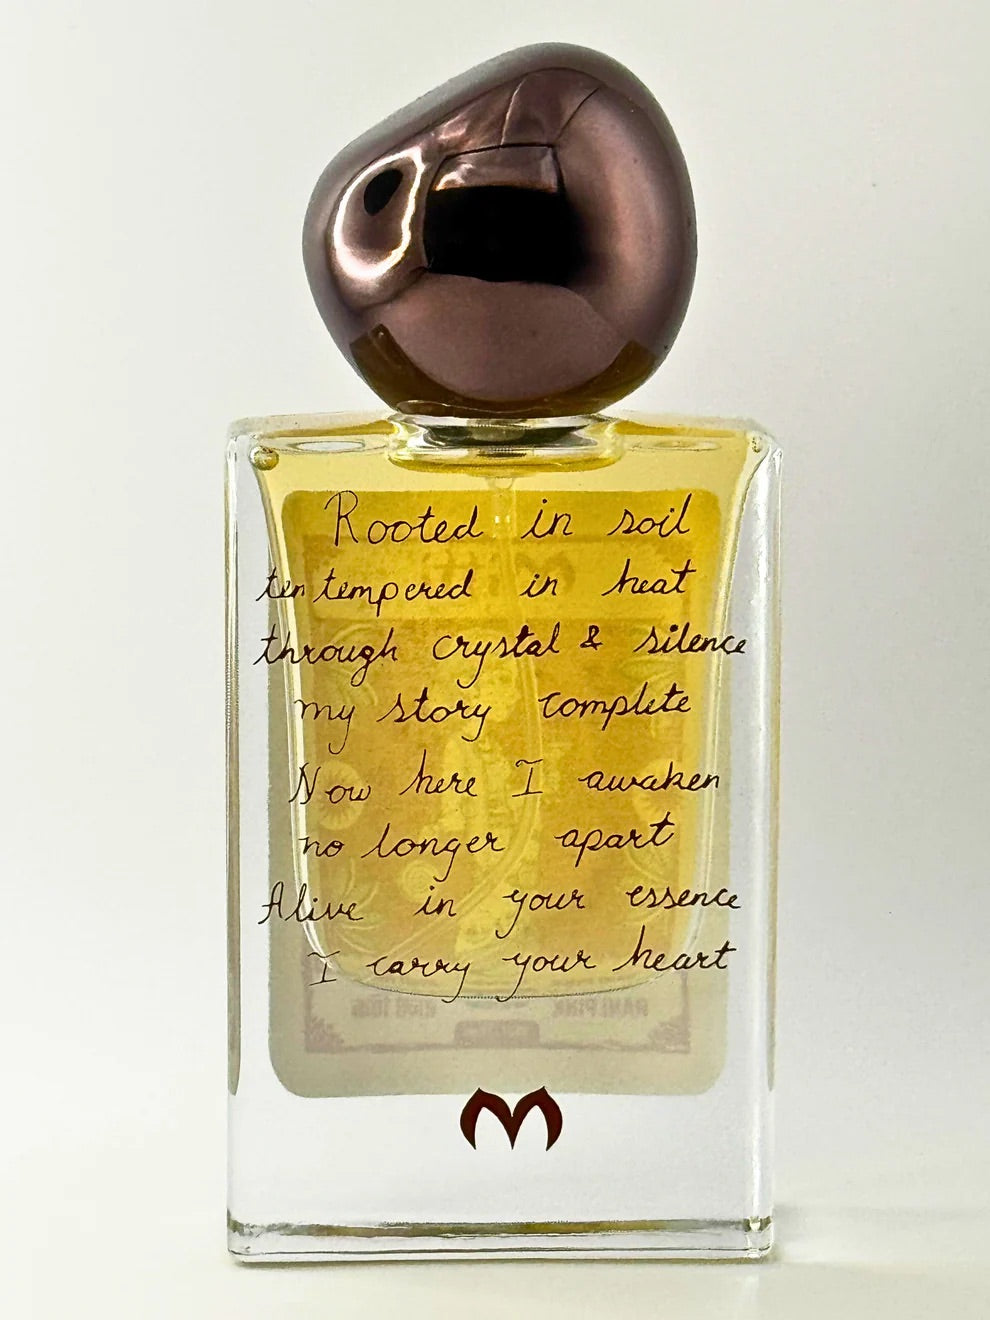 Rooted in soil
ten tempered in heat
through crystal & silence
my story complete
Now here I awaken
no longer apart
Alive in your essence
I carry your heart